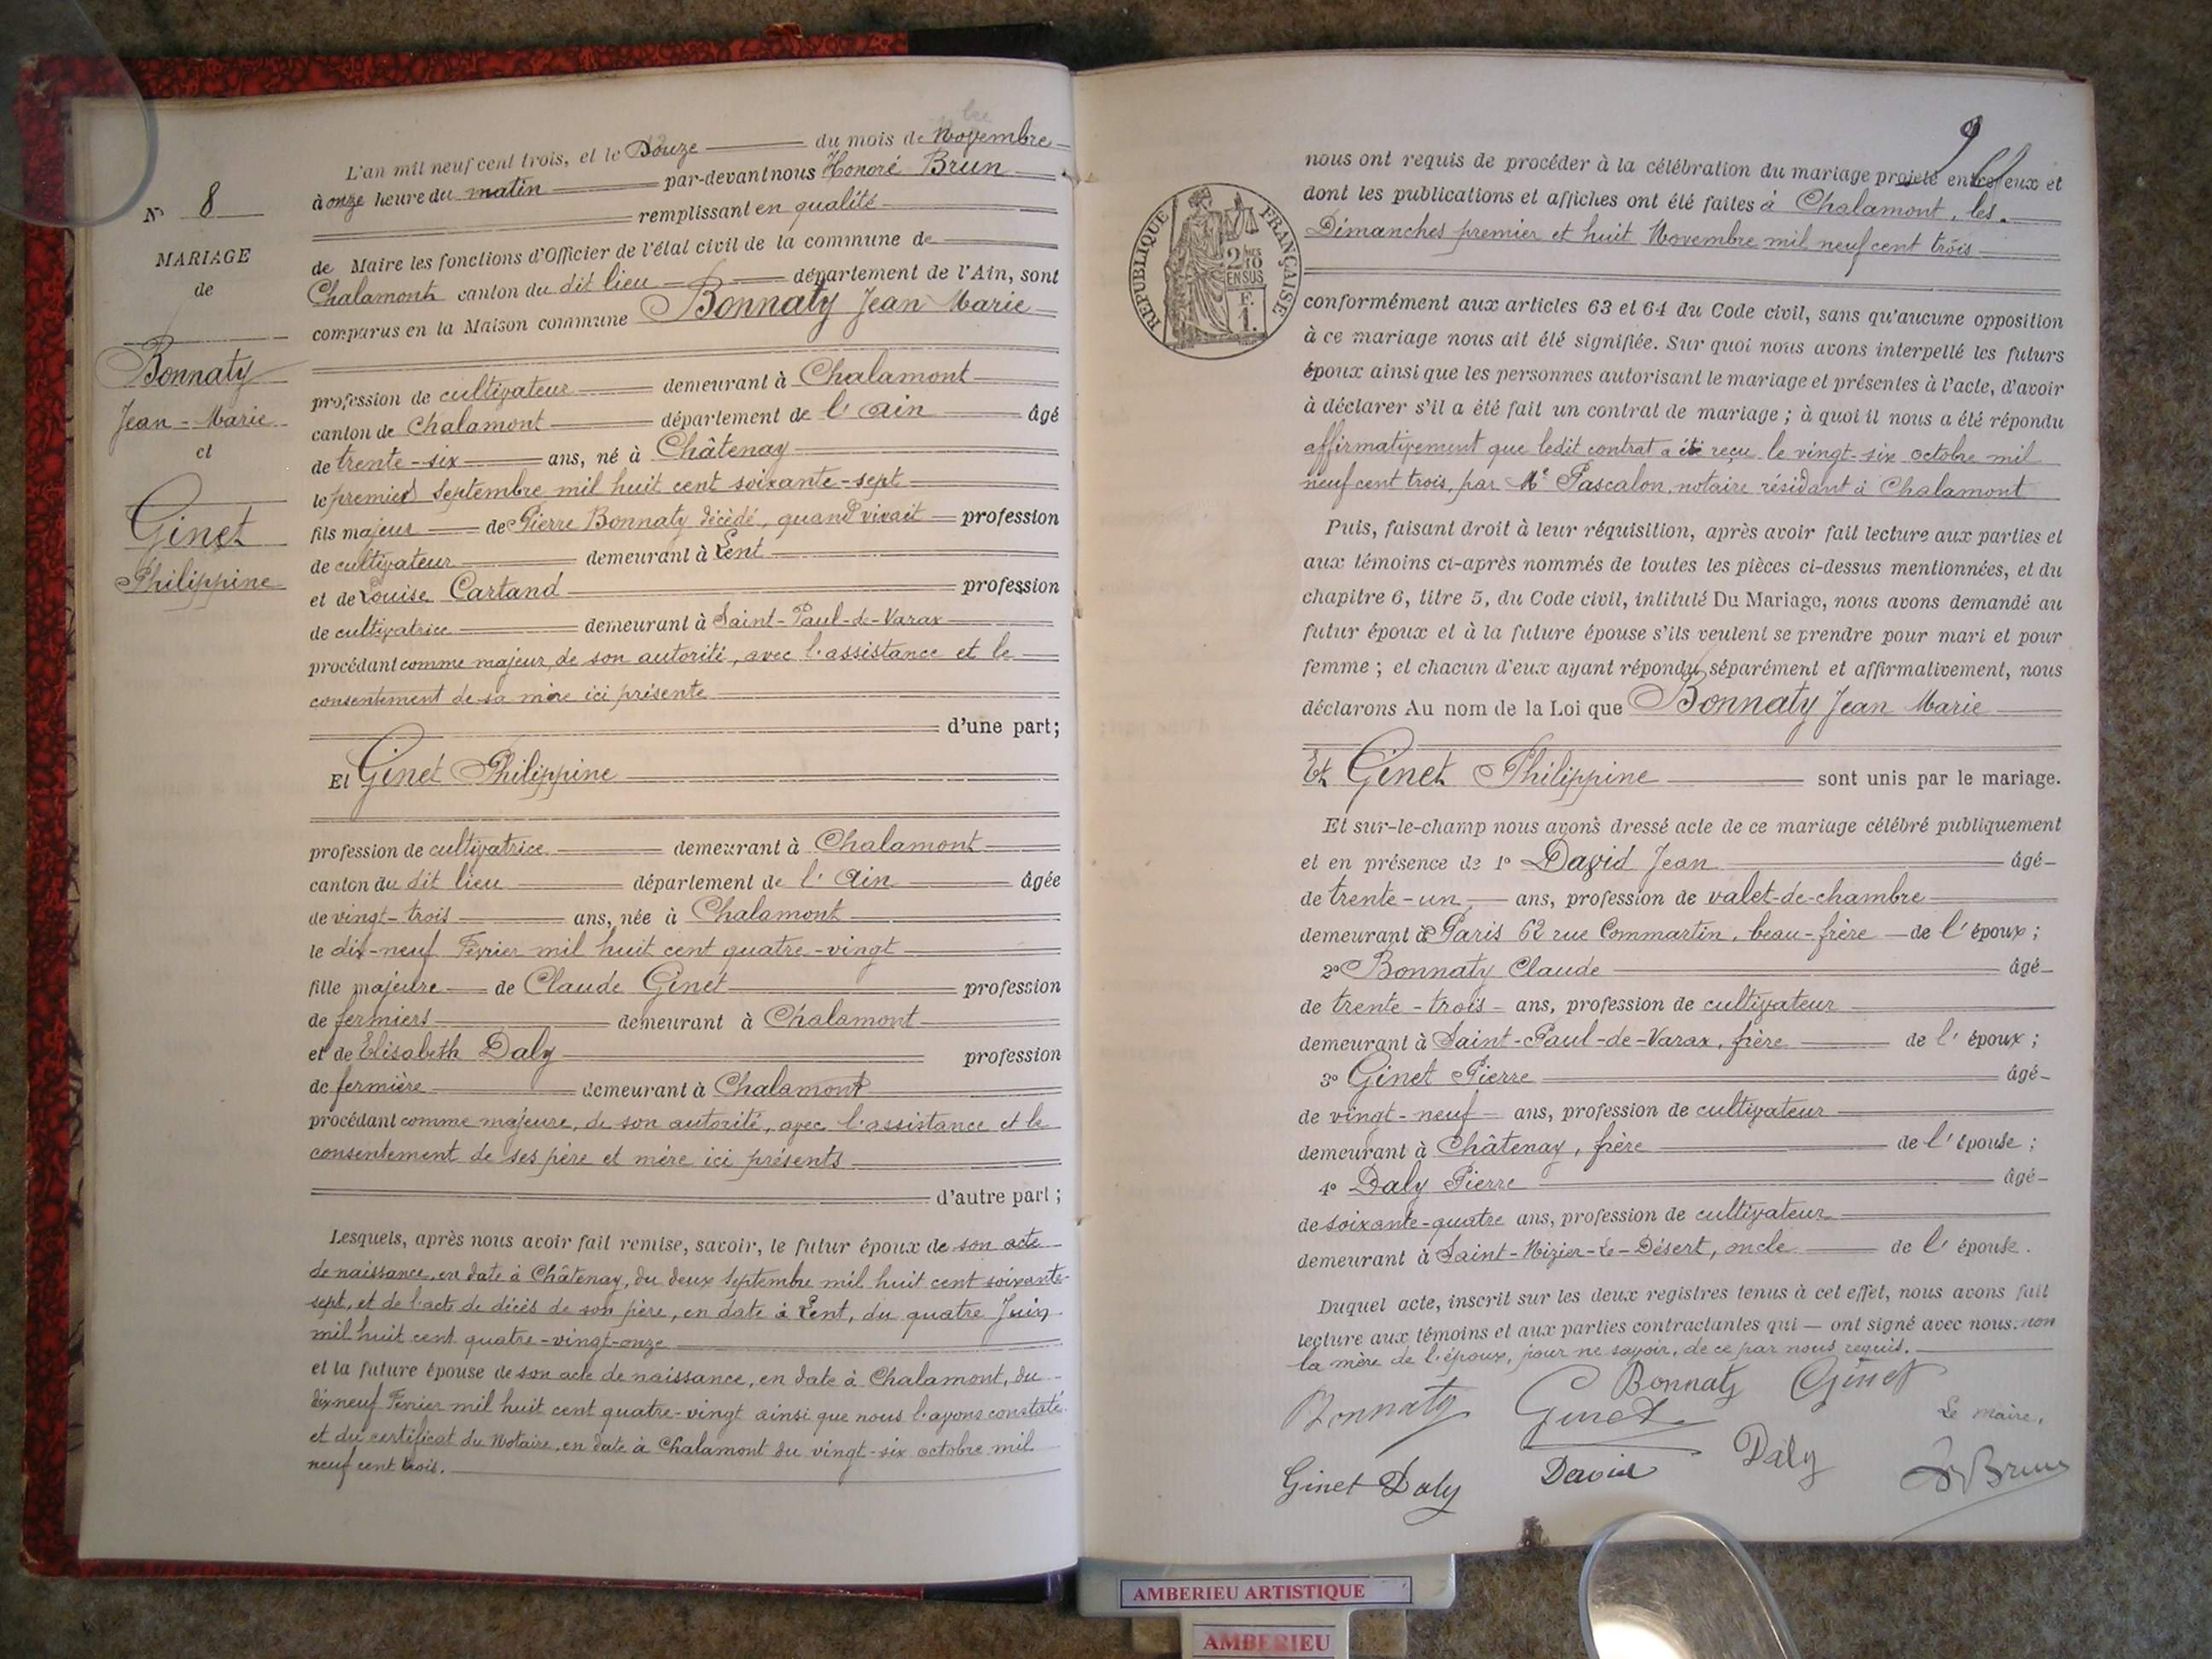 N° 8
MARIAGE
de
Bonnaty
Jean-Marie
et
Ginet
Philippine
L'an mil neuf cent trois, et le Douze du mois de Novembre
à onze heure du matin par-devant nous Honoré Brun
remplissant en qualité
de Maire les fonctions d'Officier de l'état civil de la commune de
Chalamont canton du dit lieu département de l'Ain, sont
comparus en la Maison commune Bonnaty Jean Marie
profession de cultivateur demeurant à Chalamont
canton de Chalamont département de l'Ain âgé
de trente-six ans, né à Châtenay
le premier Septembre mil huit cent soixante-sept
fils majeur de Pierre Bonnaty décédé, quand vivait profession
de cultivateur demeurant à Lent
et de Louise Cartand profession
de cultivatrice demeurant à Saint-Paul-de-Varax
procédant comme majeur, de son autorité, avec l'assistance et le
consentement de sa mère ici présente
d'une part;
Et Ginet Philippine
profession de cultivatrice demeurant à Chalamont
canton du dit lieu département de l'Ain âgée
de vingt-trois ans, née à Chalamont
le dix-neuf Février mil huit cent quatre-vingt
fille majeure de Claude Ginet profession
de fermiers demeurant à Chalamont
et de Elisabeth Daly profession
de fermière demeurant à Chalamont
procédant comme majeure, de son autorité, avec l'assistance et le
consentement de ses père et mère ici présents
d'autre part;
Lesquels, après nous avoir fait remise, savoir, le futur époux de son acte
de naissance, en date à Châtenay, du deux Septembre mil huit cent soixante-
sept, et de l'acte de décès de son père, en date à Lent, du quatre Juin
mil huit cent quatre-vingt-onze
et la future épouse de son acte de naissance, en date à Chalamont, du
dix neuf Février mil huit cent quatre-vingt ainsi que nous l'avons constaté
et du certificat du Notaire, en date à Chalamont du vingt-six octobre mil
neuf cent trois.
9
nous ont requis de procéder à la célébration du mariage projeté entre eux et
dont les publications et affiches ont été faites à Chalamont, les
Dimanches premier et huit Novembre mil neuf cent trois
REPUBLIQUE FRANÇAISE
2/10
EN SUS
F.
1.
conformément aux articles 63 et 64 du Code civil, sans qu'aucune opposition
à ce mariage nous ait été signifiée. Sur quoi nous avons interpellé les futurs
époux ainsi que les personnes autorisant le mariage et présentes à l'acte, d'avoir
à déclarer s'il a été fait un contrat de mariage; à quoi il nous a été répondu
affirmativement que ledit contrat a été reçu le vingt-six octobre mil
neuf cent trois, par Me Pascalon, notaire résidant à Chalamont
Puis, faisant droit à leur réquisition, après avoir fait lecture aux parties et
aux témoins ci-après nommés de toutes les pièces ci-dessus mentionnées, et du
chapitre 6, titre 5, du Code civil, intitulé Du Mariage, nous avons demandé au
futur époux et à la future épouse s'ils veulent se prendre pour mari et pour
femme; et chacun d'eux ayant répondu séparément et affirmativement, nous
déclarons Au nom de la Loi que Bonnaty Jean Marie
Et Ginet Philippine sont unis par le mariage.
Et sur-le-champ nous avons dressé acte de ce mariage célébré publiquement
et en présence de 1° David Jean âgé
de trente-un ans, profession de valet-de-chambre
demeurant à Paris 62 rue Commartin, beau-frère de l'époux;
2° Bonnaty Claude âgé
de trente-trois ans, profession de cultivateur
demeurant à Saint-Paul-de-Varax, frère de l'époux;
3° Ginet Pierre âgé
de vingt-neuf ans, profession de cultivateur
demeurant à Châtenay, frère de l'épouse;
4° Daly Pierre âgé
de soixante-quatre ans, profession de cultivateur
demeurant à Saint-Nizier-Le-Désert, oncle de l'épouse.
Duquel acte, inscrit sur les deux registres tenus à cet effet, nous avons fait
lecture aux témoins et aux parties contractantes qui ont signé avec nous, non
la mère de l'époux, pour ne savoir, de ce par nous requis.
Bonnaty Ginet Bonnaty Ginet
Le maire,
Ginet Daly David Daly Brun
AMBERIEU ARTISTIQUE
AMBERIEU